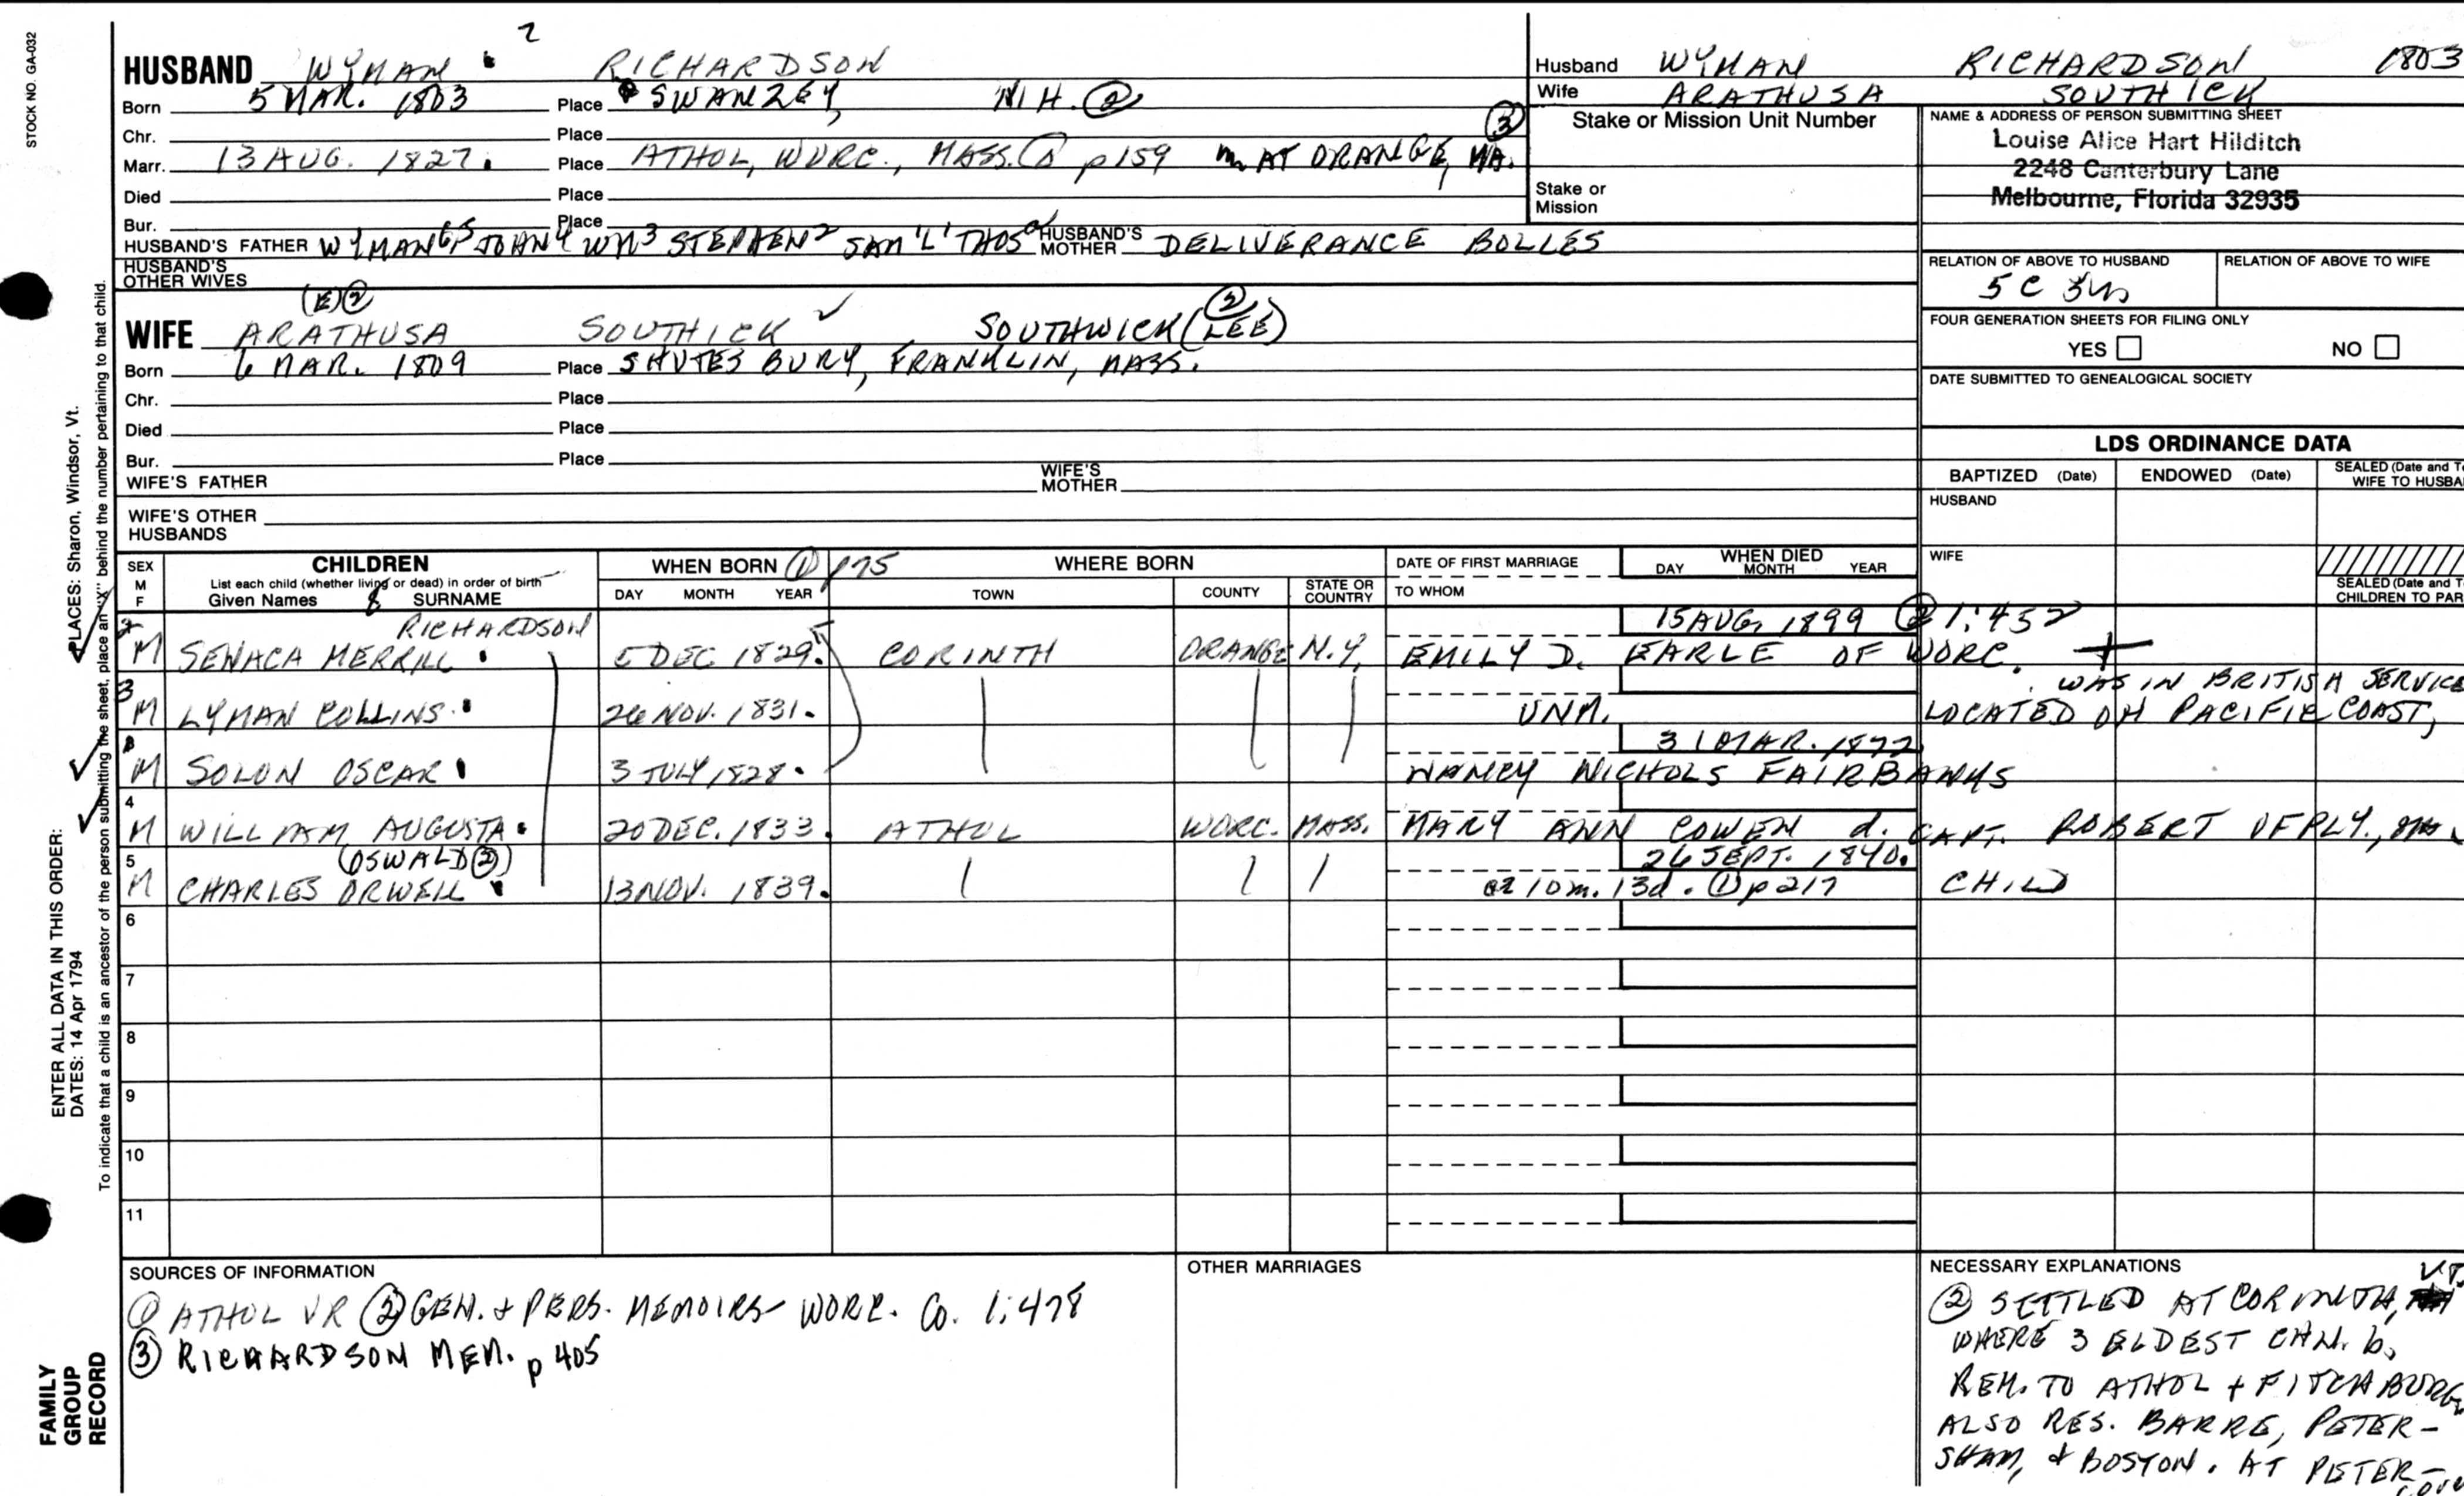 STOCK NO. GA-032
2
HUSBAND WYMAN RICHARDSON
Born 5 MAR. 1803 Place SWANZEY, N.H. ②
Chr. Place
③
Marr. 13 AUG. 1827. Place ATHOL, WORC., MASS. ① p159 m AT ORANGE, MA.
Died Place
Bur. Place
HUSBAND'S FATHER WYMAN JOHN4 WM3 STEPHEN2 SAM'L1 THOS HUSBAND'S MOTHER DELIVERANCE BOLLES
HUSBAND'S OTHER WIVES
(E)② ②
WIFE ARATHUSA SOUTHICK ✓ SOUTHWICK (LEE)
Born 6 MAR. 1809 Place SHUTESBURY, FRANKLIN, MASS.
Chr. Place
Died Place
Bur. Place
WIFE'S FATHER WIFE'S MOTHER
WIFE'S OTHER HUSBANDS
Husband WYMAN RICHARDSON 1803
Wife ARATHUSA SOUTHICK
Stake or Mission Unit Number
Stake or Mission
NAME & ADDRESS OF PERSON SUBMITTING SHEET
Louise Alice Hart Hilditch
2248 Canterbury Lane
Melbourne, Florida 32935
RELATION OF ABOVE TO HUSBAND RELATION OF ABOVE TO WIFE
5 C
FOUR GENERATION SHEETS FOR FILING ONLY
YES NO
DATE SUBMITTED TO GENEALOGICAL SOCIETY
LDS ORDINANCE DATA
BAPTIZED (Date) ENDOWED (Date) SEALED (Date and
WIFE TO
HUSBAND
WIFE
SEALED (Date and
CHILDREN TO
SEX M F CHILDREN WHEN BORN ① p75 WHERE BORN DATE OF FIRST MARRIAGE WHEN DIED
List each child (whether living or dead) in order of birth DAY MONTH YEAR
Given Names & SURNAME DAY MONTH YEAR TOWN COUNTY STATE OR COUNTRY TO WHOM
RICHARDSON 15 AUG. 1899 ② 1:452
2 M SENACA MERRILL 5 DEC 1829. CORINTH ORANGE N.Y. EMILY D. EARLE OF WORC. +
WAS IN BRITISH SERVICE
3 M LYMAN COLLINS. 26 NOV. 1831. UNM. LOCATED ON PACIFIC COAST,
31 MAR. 1877
M SOLON OSCAR 3 JULY 1828. NANCY NICHOLS FAIRBANKS
4 M WILLIAM AUGUSTA. 20 DEC. 1833. ATHOL WORC. MASS. MARY ANN COWEN d. CAPT. ROBERT OF PLY.,
5 (OSWALD②) 26 SEPT. 1840.
M CHARLES ORWELL 13 NOV. 1839. 10 m. 13d. ① p 217 CHILD
6
7
8
9
10
11
SOURCES OF INFORMATION
① ATHOL VR ② GEN. & PERS. MEMOIRS WORC. Co. 1:478
③ RICHARDSON MEM. p 405
OTHER MARRIAGES
NECESSARY EXPLANATIONS
VT.
② SETTLED AT CORINTH,
WHERE 3 ELDEST CHN. b,
REM. TO ATHOL + FITCHBURG
ALSO RES. BARRE, PETER-
SHAM, & BOSTON. AT PETER-
ENTER ALL DATA IN THIS ORDER:
PLACES: Sharon, Windsor, Vt.
DATES: 14 Apr 1794
To indicate that a child is an ancestor of the person submitting the sheet, place an "X" behind the number pertaining to that child.
FAMILY
GROUP
RECORD